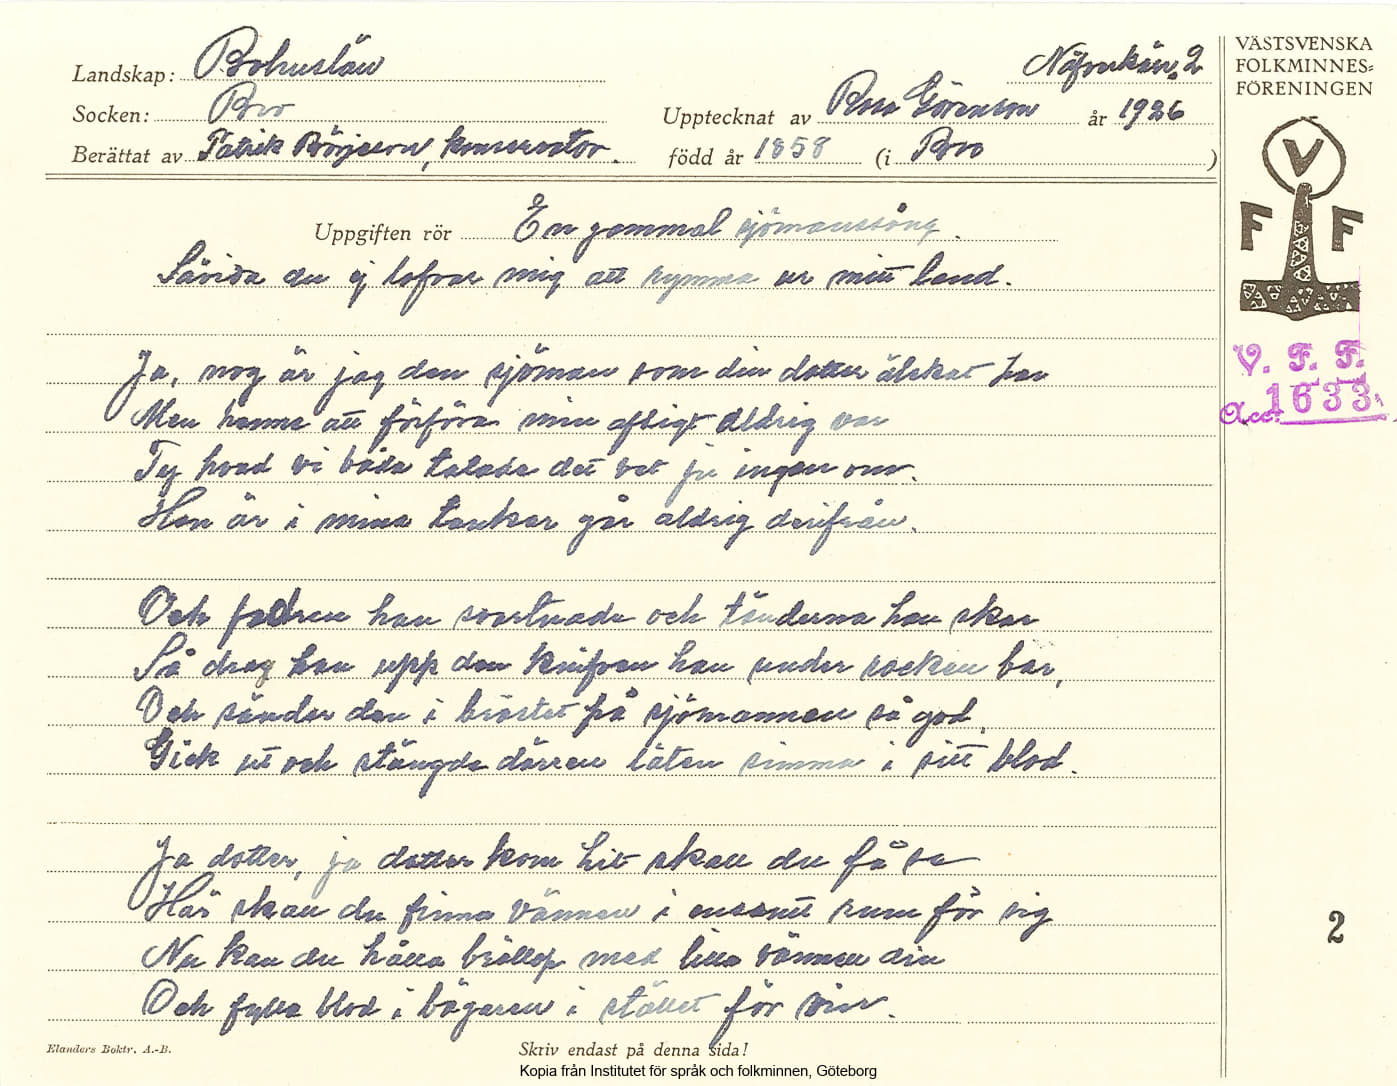 Landskap: Bohuslän
Socken: Bro
Berättat av Patrik Börjeson, konservator.
Upptecknat av Göranson år 1926
född år 1858 (i Bro)
VÄSTSVENSKA
FOLKMINNES-
FÖRENINGEN
V
F F
V. F. F.
Acc. 1633.
Uppgiften rör En gammal sjömanssång.
Såvida du ej lofvar mig att rymma ur mitt land.
Ja, nog är jag den sjöman som din dotter älskat har
Men henne att förföra min afsigt aldrig var
Ty hvad vi båda talade det vet ju ingen om.
Hon är i mina tankar går aldrig derifrån.
Och fadren han svartnade och tänderna han skar
Så drog han upp den knifven han under rocken bar,
Och sänder den i bröstet på sjömannen så god,
Gick ut och stängde dörren låten simma i sitt blod.
Ja dotter, ja dotter kom hit skall du få se
Här skall du finna vännen i ensamt rum för sig
Nu kan du hålla bröllop med lilla vännen din
Och fylla blod i bägaren i stället för vin.
2
Elanders Boktr. A.-B.
Skriv endast på denna sida!
Kopia från Institutet för språk och folkminnen, Göteborg